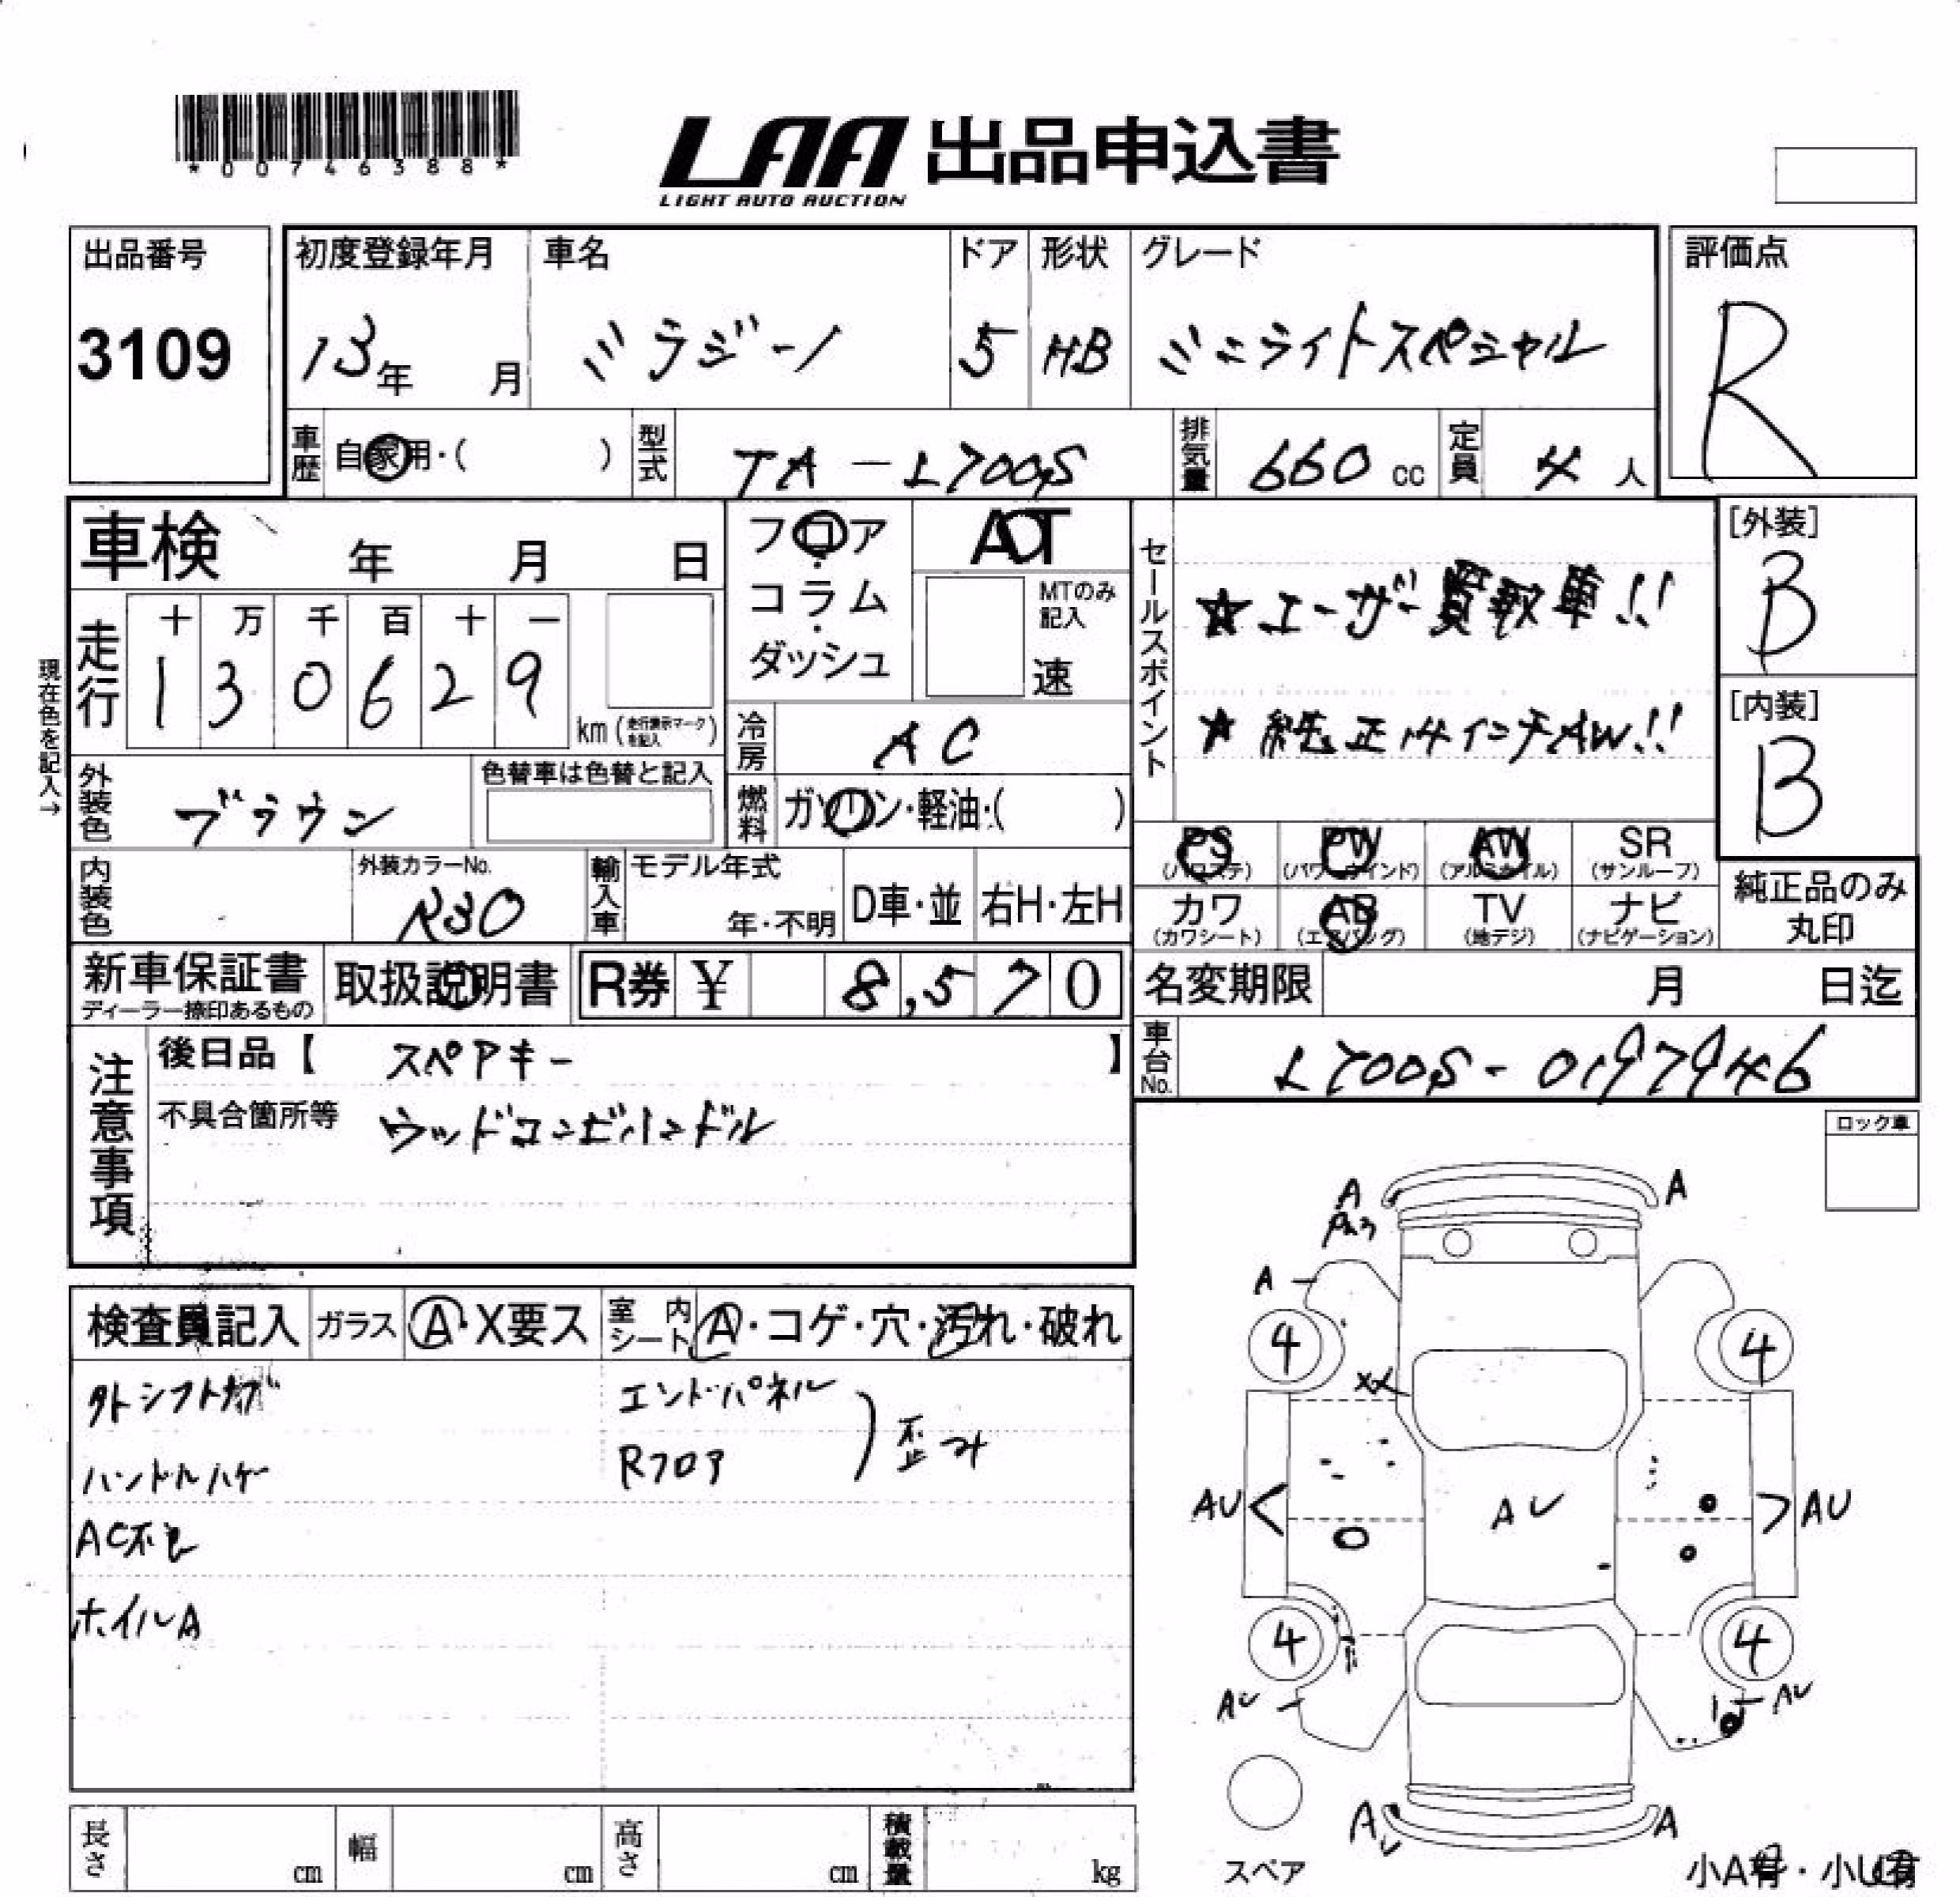 *00746388*
LAA 出品申込書
LIGHT AUTO AUCTION
出品番号
3109
初度登録年月
13年 月
車名
ミラジーノ
ドア
5
形状
HB
グレード
ミニライトスペシャル
評価点
R
車歴 自家用・( )
型式 TA-L700S
排気量 660 cc
定員 4 人
車検 年 月 日
フロア・コラム・ダッシュ
AT
MTのみ記入
速
セールスポイント
★ユーザー買取車!!
★純正14インチAW!!
[外装]
B
[内装]
B
現在色を記入→
走行
十 万 千 百 十 一
1 3 0 6 2 9
km (走行表示マークを記入)
冷房 AC
外装色 ブラウン
色替車は色替と記入
燃料 ガソリン・軽油・( )
PS (パワステ)
PW (パワーウインド)
AW (アルミホイル)
SR (サンルーフ)
カワ (カワシート)
AB (エアバッグ)
TV (地デジ)
ナビ (ナビゲーション)
純正品のみ丸印
内装色
外装カラーNo.
R30
輸入車
モデル年式
年・不明
D車・並
右H・左H
新車保証書
ディーラー捺印あるもの
取扱説明書
R券 ¥ 8,570
名変期限 月 日迄
車台No. L700S-0197946
注意事項
後日品【 スペアキー 】
不具合箇所等 ウッドコンビハンドル
ロック車
検査員記入
ガラス A・X要ス
室内シート A・コゲ・穴・汚れ・破れ
外シフトノブ
ハンドルハゲ
AC不良
ホイルA
エンドパネル
Rフロア
歪み
A
A
A
4
4
XX
AU
AU
AU
4
4
AU
AU
AU
A
スペア
小A有・小U有
長さ cm
幅 cm
高さ cm
積載量 kg